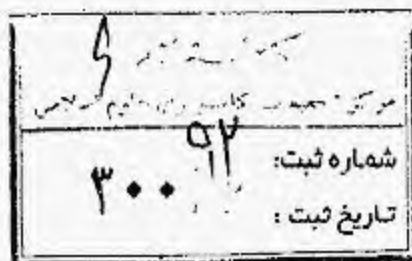 کتابخانه
مرکز تحقیقات کامپیوتری علوم اسلامی
شماره ثبت: ۳۰۰۹۲
تاریخ ثبت :